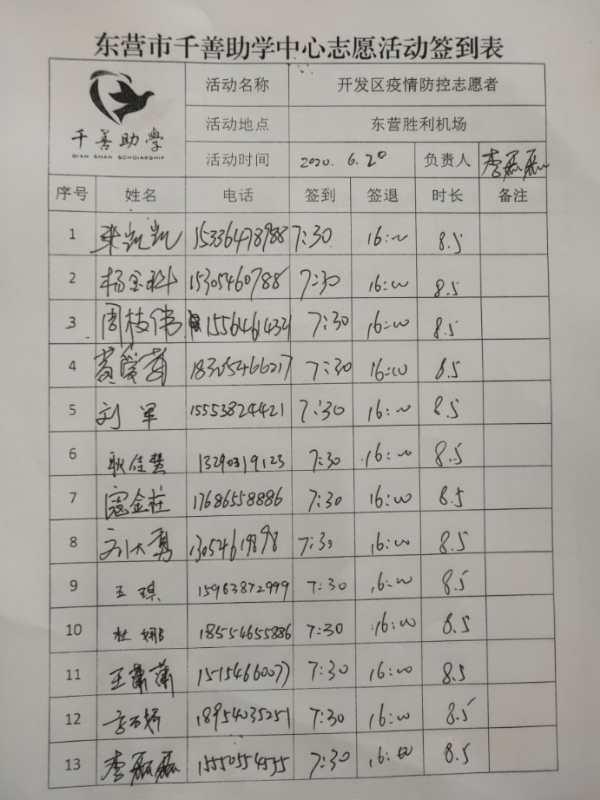 东营市千善助学中心志愿活动签到表
千善助学
QIAN SHAN SCHOLARSHIP
活动名称 开发区疫情防控志愿者
活动地点 东营胜利机场
活动时间 2020.6.20 负责人 李磊磊
序号 姓名 电话 签到 签退 时长 备注
1 张凯凯 15336478988 7:30 16:00 8.5
2 杨金科 15305460788 7:30 16:00 8.5
3 周枝伟 15564614321 7:30 16:00 8.5
4 黄爱菊 18305466217 7:30 16:00 8.5
5 刘军 15553824421 7:30 16:00 8.5
6 耿佳慧 13290319123 7:30 16:00 8.5
7 寇金柱 17686558886 7:30 16:00 8.5
8 刘大勇 13054619898 7:30 16:00 8.5
9 王琪 15963872999 7:30 16:00 8.5
10 杜娜 18554655886 7:30 16:00 8.5
11 王潇潇 15154660077 7:30 16:00 8.5
12 18954035251 7:30 16:00 8.5
13 李磊磊 15550554555 7:30 16:00 8.5